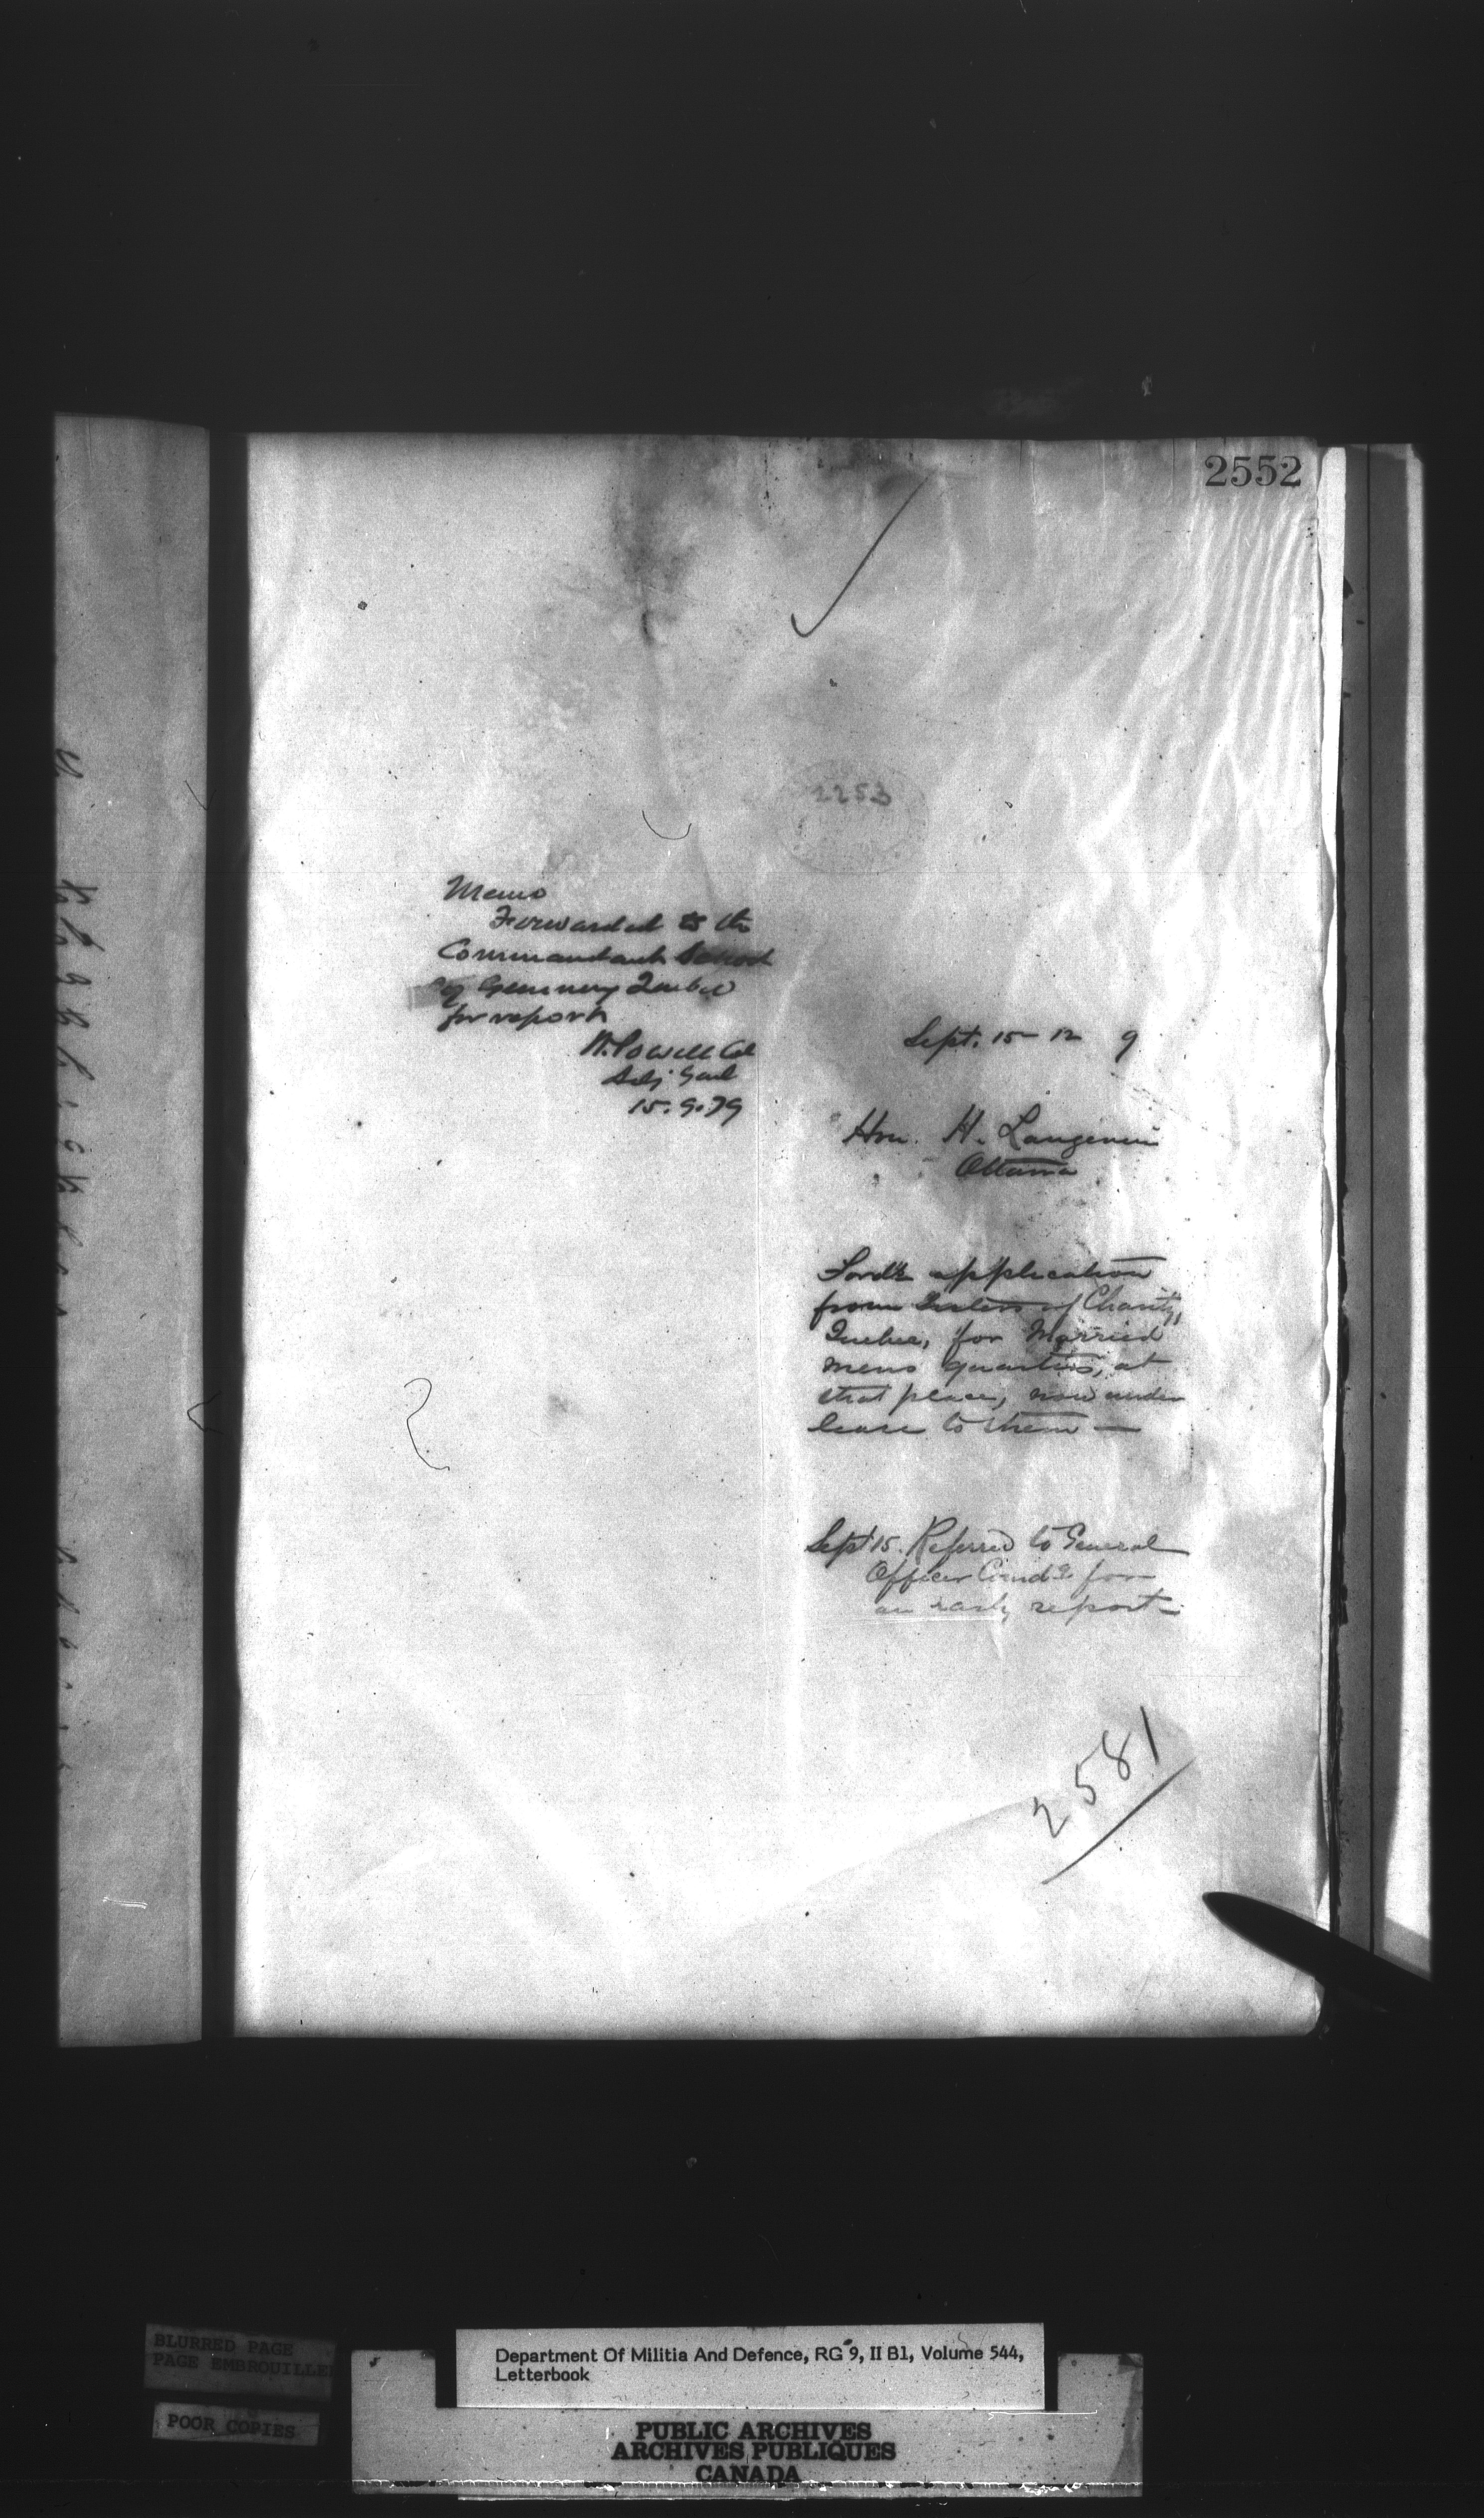 2552
2253
Memo
Forwarded to the
Commandant School
of Gunnery Quebec
for report
W. Powell Col
Adj. Genl
15.9.79
Sept. 15 - 12 9
Hon. H. Langevin
Ottawa
Forde application
from Sisters of Charity,
Quebec, for Married
mens quarters, at
that place, now under
lease to them —
Sept 15. Referred to General
Officer Comdg for
an early report -
2581
BLURRED PAGE
PAGE EMBROUILLE
POOR COPIES
Department Of Militia And Defence, RG 9, II B1, Volume 544,
Letterbook
PUBLIC ARCHIVES
ARCHIVES PUBLIQUES
CANADA